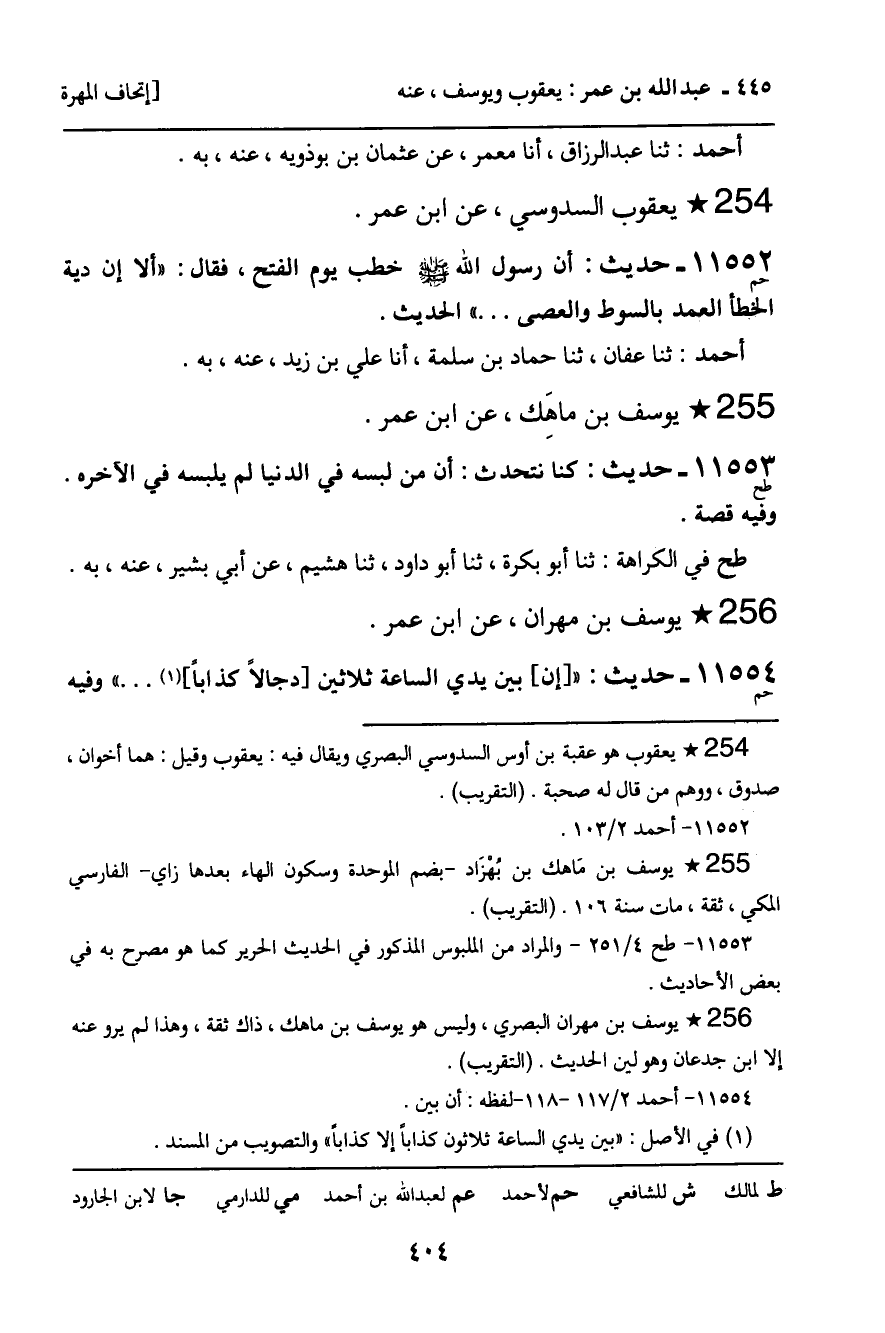 ٤٤٥ ـ عبدالله بن عمر : يعقوب ويوسف ، عنه [إتحاف المهرة
أحمد : ثنا عبدالرزاق ، أنا معمر ، عن عثمان بن بوذويه ، عنه ، به .
254 ★ يعقوب السدوسي ، عن ابن عمر .
١١٥٥٢ ـ حديث : أن رسول الله ﷺ خطب يوم الفتح ، فقال : «ألا إن دية
حم
الخطأ العمد بالسوط والعصى ...» الحديث .
أحمد : ثنا عفان ، ثنا حماد بن سلمة ، أنا علي بن زيد ، عنه ، به .
255 ★ يوسف بن ماهَِك ، عن ابن عمر .
١١٥٥٣ ـ حديث : كنا نتحدث : أن من لبسه في الدنيا لم يلبسه في الآخره .
طح
وفيه قصة .
طح في الكراهة : ثنا أبو بكرة ، ثنا أبو داود ، ثنا هشيم ، عن أبي بشير ، عنه ، به .
256 ★ يوسف بن مهران ، عن ابن عمر .
١١٥٥٤ ـ حديث : «[إن] بين يدي الساعة ثلاثين [دجالاً كذاباً](١) ...» وفيه
حم
254 ★ يعقوب هو عقبة بن أوس السدوسي البصري ويقال فيه : يعقوب وقيل : هما أخوان ،
صدوق ، ووهم من قال له صحبة . (التقريب) .
١١٥٥٢- أحمد ١٠٣/٢ .
255 ★ يوسف بن مَاهك بن بُهْزَاد -بضم الموحدة وسكون الهاء بعدها زاي- الفارسي
المكي ، ثقة ، مات سنة ١٠٦ . (التقريب) .
١١٥٥٣- طح ٢٥١/٤ - والمراد من الملبوس المذكور في الحديث الحرير كما هو مصرح به في
بعض الأحاديث .
256 ★ يوسف بن مهران البصري ، وليس هو يوسف بن ماهك ، ذاك ثقة ، وهذا لم يرو عنه
إلا ابن جدعان وهو لين الحديث . (التقريب) .
١١٥٥٤- أحمد ١١٧/٢ -١١٨-لفظه : أن بين .
(١) في الأصل : «بين يدي الساعة ثلاثون كذاباً إلا كذاباً» والتصويب من المسند .
ط لمالك ش للشافعي حم لأحمد عم لعبدالله بن أحمد مي للدارمي جا لابن الجارود
٤٠٤